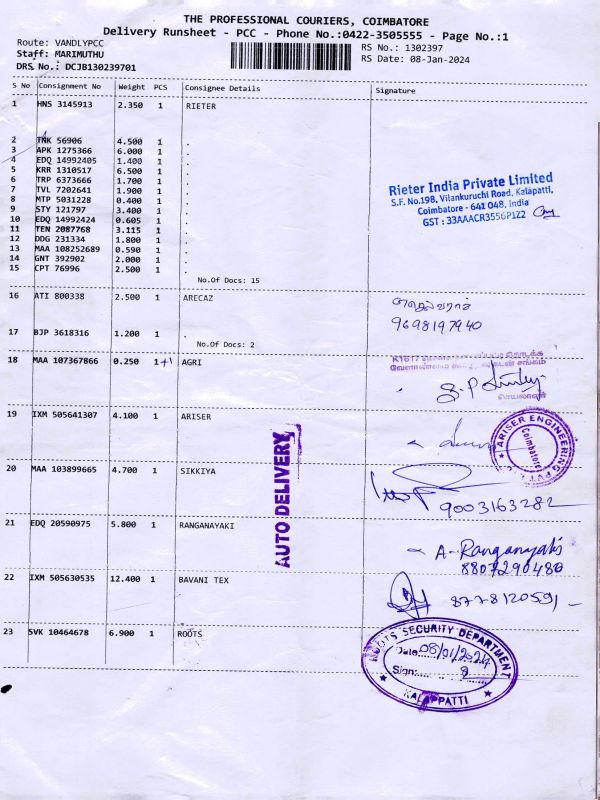 THE PROFESSIONAL COURIERS, COIMBATORE
Delivery Runsheet - PCC - Phone No.:0422-3505555 - Page No.:1
Route: VANDLYPCC
Staff: MARIMUTHU
DRS No.: DCJB130239701
RS No.: 1302397
RS Date: 08-Jan-2024
S No Consignment No Weight PCS Consignee Details Signature
1 HNS 3145913 2.350 1 RIETER
2 TNK 56906 4.500 1 .
3 APK 1275366 6.000 1 .
4 EDQ 14992405 1.400 1 .
5 KRR 1310517 6.500 1 .
6 TRP 6373666 1.700 1 .
7 TVL 7202641 1.900 1 .
8 MTP 5031228 0.400 1 .
9 STY 121797 3.400 1 .
10 EDQ 14992424 0.605 1 .
11 TEN 2087768 3.115 1 .
12 DDG 231334 1.800 1 .
13 MAA 108252689 0.590 1 .
14 GNT 392902 2.000 1 .
15 CPT 76996 2.500 1 .
No.Of Docs: 15
Rieter India Private Limited
S.F. No.198, Vilankuruchi Road, Kalapatti,
Coimbatore - 641 048, India
GST : 33AAACR3556P1Z2
16 ATI 800338 2.500 1 ARECAZ
9698197940
17 BJP 3618316 1.200 1 .
No.Of Docs: 2
18 MAA 107367866 0.250 1 +1 AGRI
செயலாளர்
19 IXM 505641307 4.100 1 ARISER
ARISER ENGINEERING PVT
Coimbatore
AUTO DELIVERY
20 MAA 103899665 4.700 1 SIKKIYA
9003163282
21 EDQ 20590975 5.800 1 RANGANAYAKI
A. Ranganyaki
8807290480
22 IXM 505630535 12.400 1 BAVANI TEX
8778120591
23 SVK 10464678 6.900 1 ROOTS
ROOTS SECURITY DEPARTMENT
Date: 08/01/2024
Sign:
KALAPPATTI